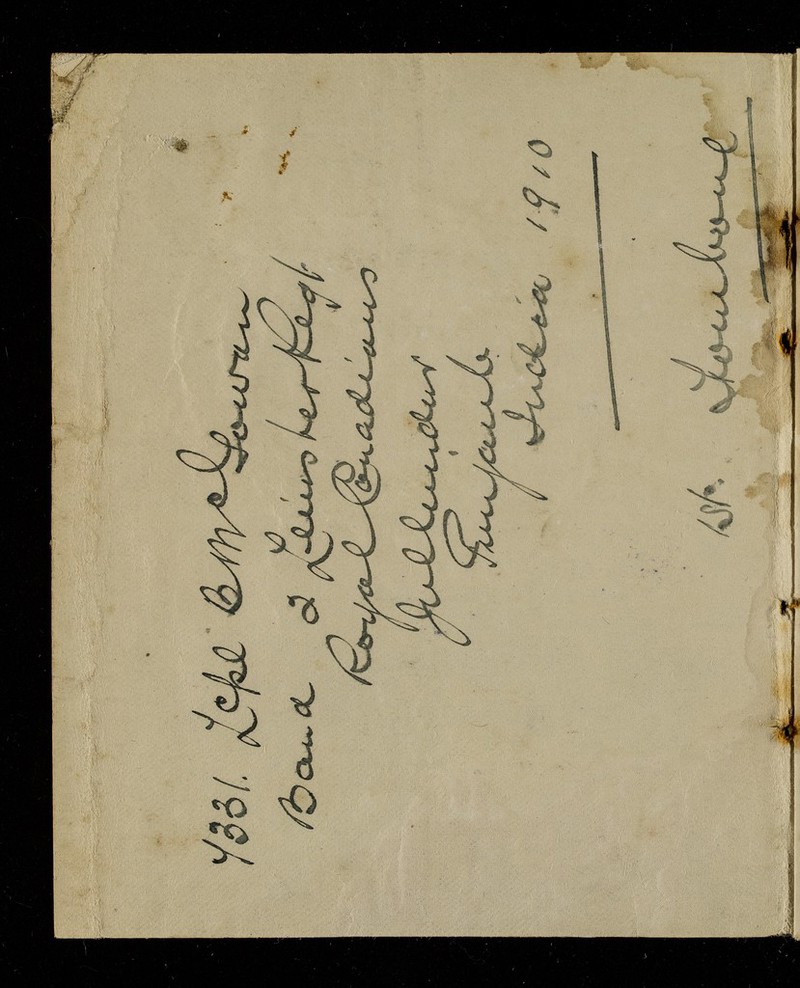 7331. Lcpl C McGowan
Band 2 Leinster Regt
Royal Canadians
Jullundur
Punjaub.
India 1910
1st. Trombone